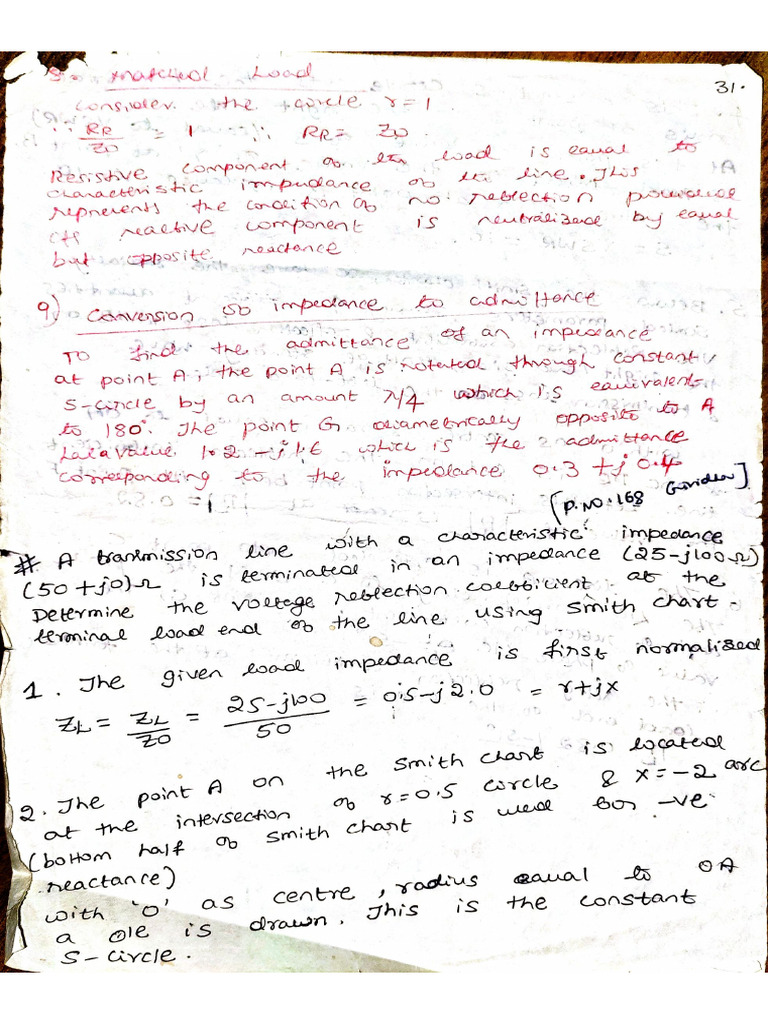 8. Matched Load
31.
Consider the circle r = 1
∴ RR/Z0 = 1 ∴ RR = Z0.
Resistive component of the load is equal to
characteristic impedance of the line. This
represents the condition of no reflection provided
its reactive component is neutralized by equal
but opposite reactance
9) Conversion of impedance to admittance
To find the admittance of an impedance
at point A, the point A is rotated through constant
S-circle by an amount λ/4 which is equivalent
to 180°. The point G diametrically opposite to A
has a value 1.2 - j1.6 which is the admittance
corresponding to the impedance 0.3 + j0.4
[P.NO:168
# A transmission line with a characteristic impedance
(50+j0)Ω is terminated in an impedance (25-j100Ω)
Determine the voltage reflection coefficient at the
terminal load end of the line using Smith chart.
1. The given load impedance is first normalised
ZL = ZL/Z0 = 25-j100/50 = 0.5-j2.0 = r+jx
2. The point A on the Smith chart is located
at the intersection of r=0.5 circle & x=-2 arc
(bottom half of Smith chart is used for -ve
reactance)
with 'O' as centre, radius equal to OA
a Ole is drawn. This is the constant
S-circle.